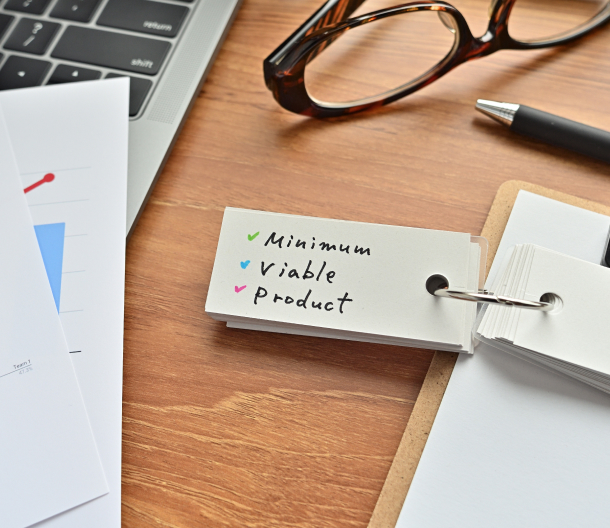 return
shift
Minimum
Viable
Product
Team 1